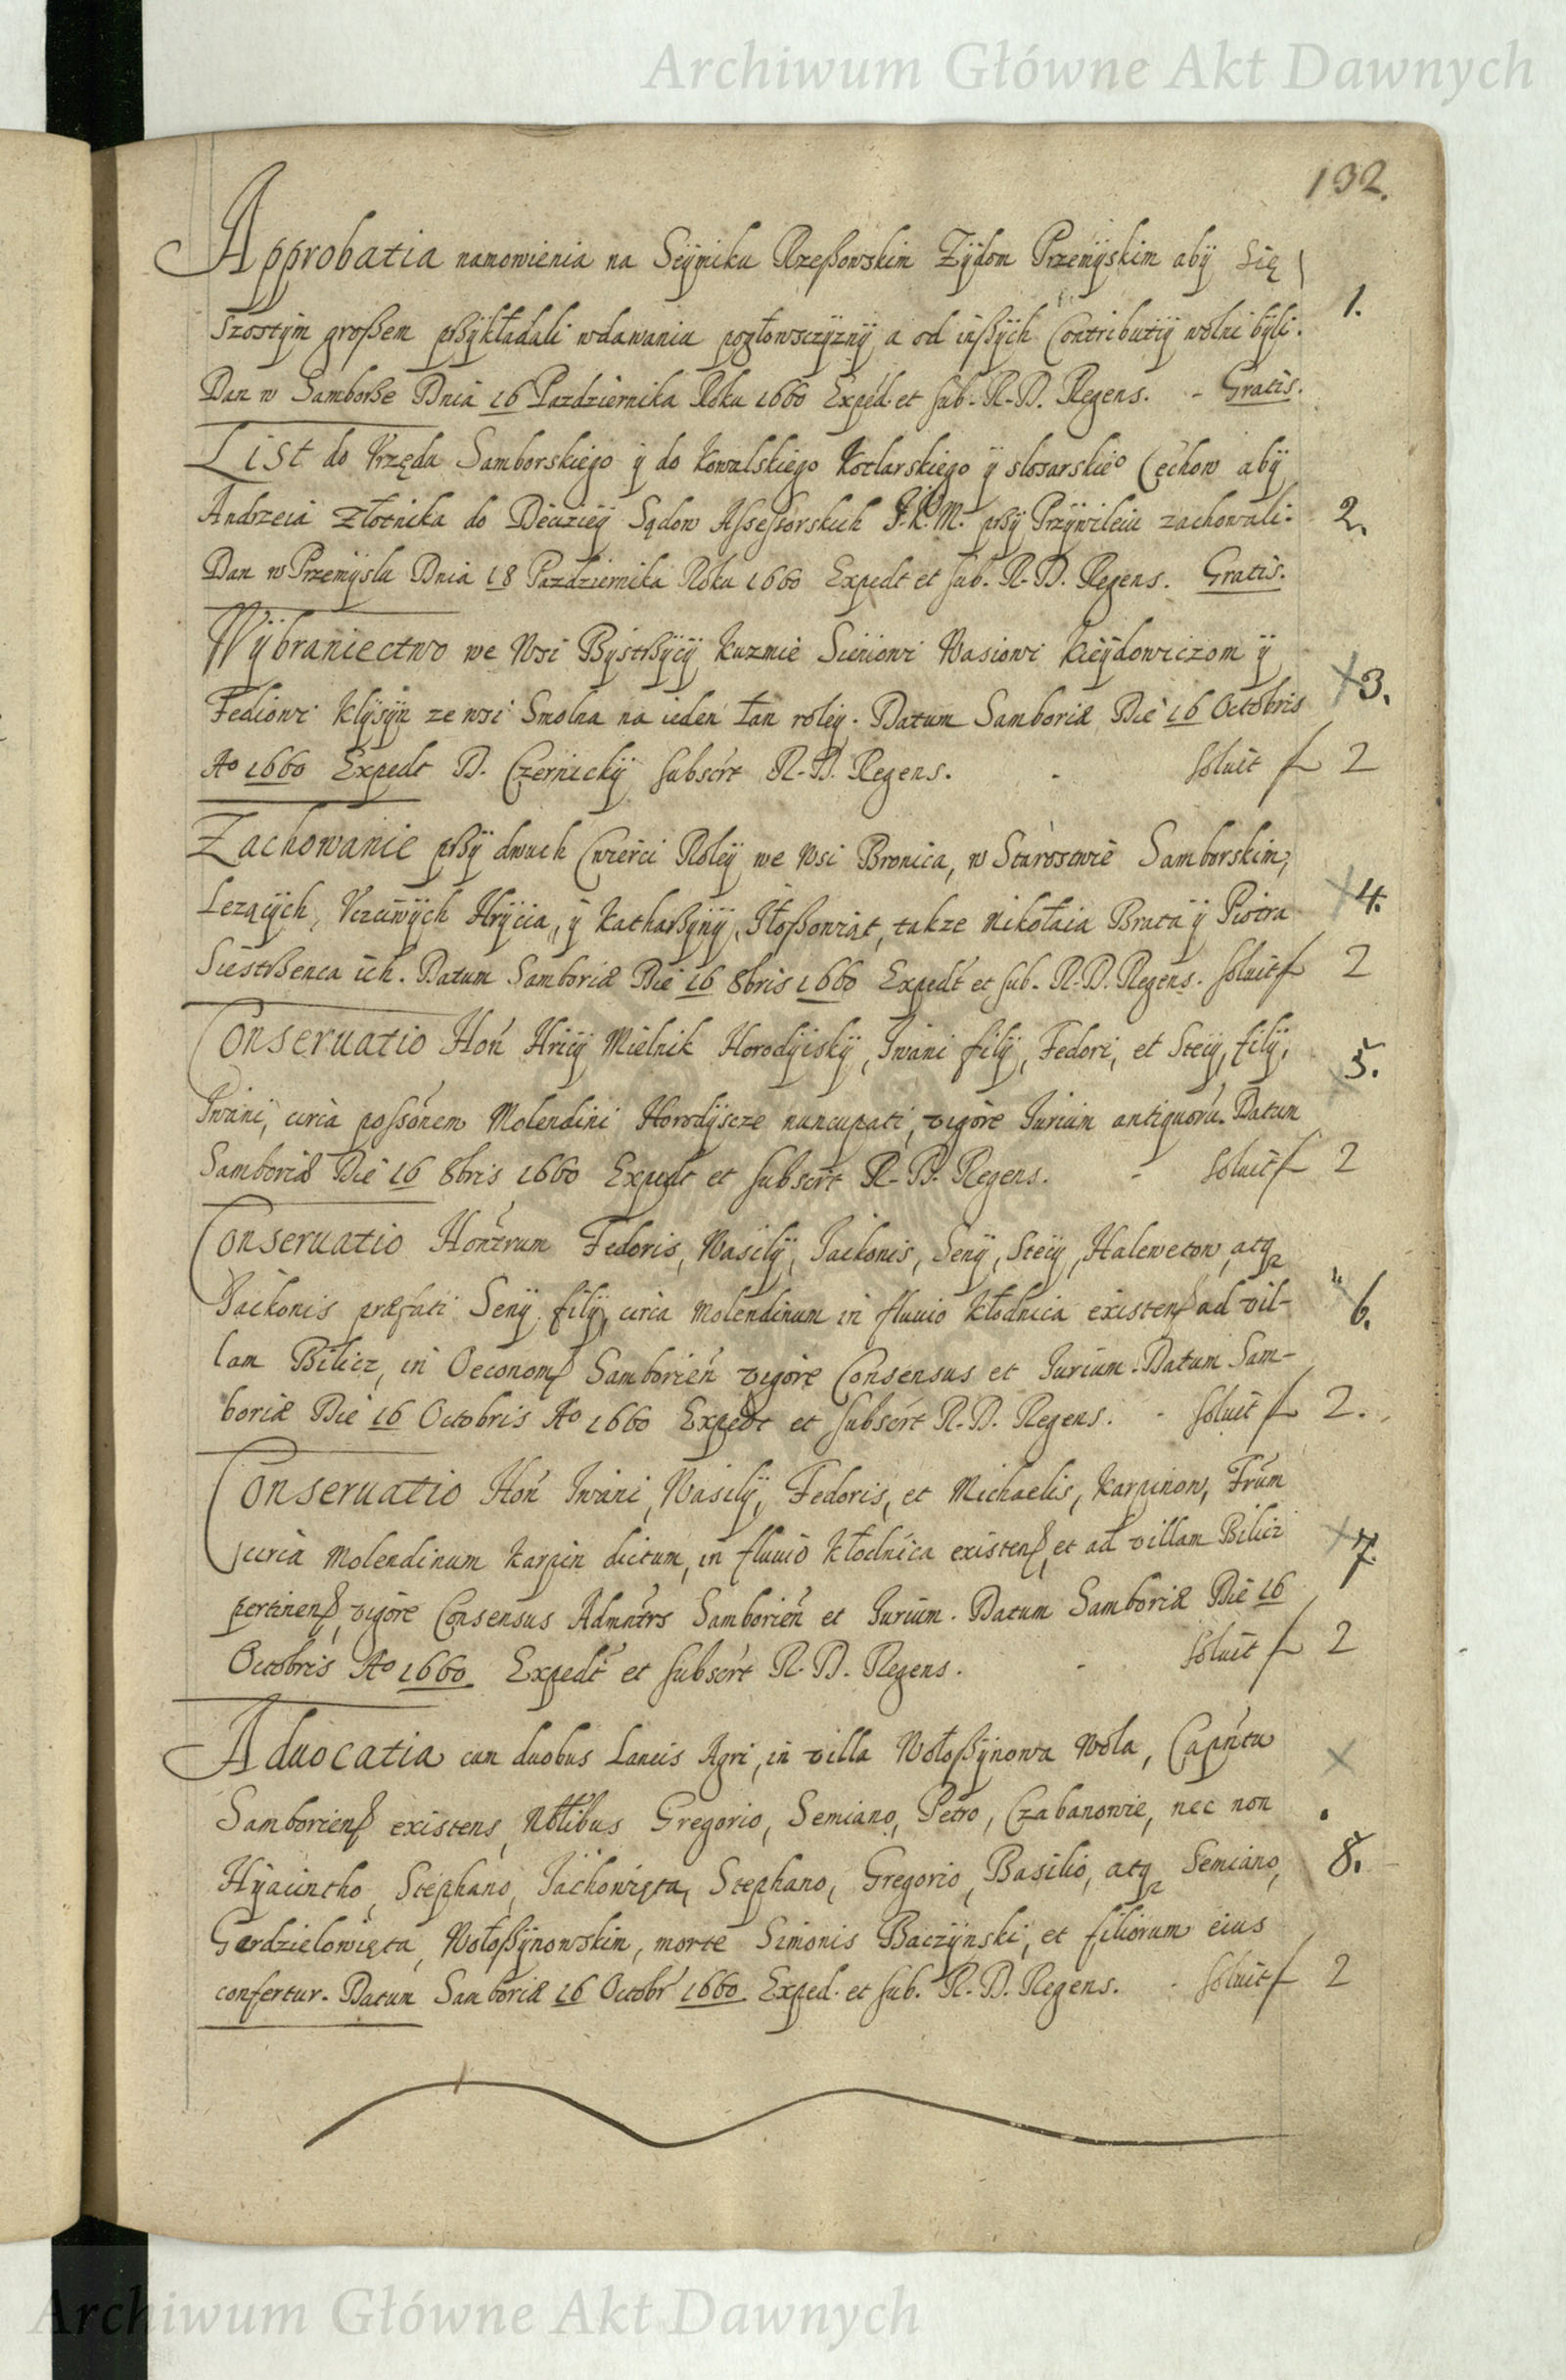 Archiwum Główne Akt Dawnych
132.
Approbatia namowienia na Seÿmiku Rzeßowskim Zÿdom Przemÿskim abÿ się
1.
Szostÿm großem przÿkładali wdawaniu pogłowsczÿznÿ a od inßÿch Contributiÿ wolni bÿli.
Dan w Samborze Dnia 16 Pazdziernika Roku 1660 Exped. et sub. R. D. Regens. - Gratis.
List do Vrzędu Samborskiego ÿ do Kowalskiego Kotlarskiego ÿ slosarskieo Cechow abÿ
Andrzeia Złotnika do Decizieÿ Sądow Assessorskich J. K. M. przÿ Przÿwileiu zachowali.
2.
Dan w Przemÿslu Dnia 18 Pazdziernika Roku 1660 Expedt et sub. R. D. Regens. Gratis.
Wÿbraniectwo we Wsi Bÿstrzÿcÿ Kuzmie Sieniowi Wasiowi Kieÿdowiczom ÿ
3.
Fediowi Klÿsÿn ze wsi Smolna na ieden łan roleÿ. Datum Samboriæ Die 16 Octobris
Ao 1660 Expedt D. Czernickÿ subscrt R. D. Regens. - soluit f 2
Zachowanie przÿ dwuch Cwierci Roleÿ we Wsi Bronica, w Starostwie Samborskim,
4.
Lezącÿch, Vczciwÿch Hrÿcia, ÿ Katharzÿnÿ, Jłoßowiąt, takze Mikołaia Brata ÿ Piotra
Siestrzenca ich. Datum Samboriæ Die 16 8bris 1660 Expedt et sub. R. D. Regens. soluit f 2
Conseruatio Hon Hricÿ Mielnik Horodÿiskÿ, Jwani filÿ, Fedori, et Stecÿ, filÿ,
5.
Jwani, circa possonem Molendini Horodÿscze nuncupati, vigore Jurium antiquoru. Datum
Samboriæ Die 16 8bris 1660 Expedt et subscrt R. D. Regens. - soluit f 2
Conseruatio Hontrum Fedoris, Wasilÿ, Jackonis, Senÿ, Stecÿ, Halewetow, atq
Jackonis præfati Senÿ filÿ, circa Molendinum in fluuio Kłodnica existen ad vil-
6.
lam Bilicz, in Oeconom Samborien vigore Consensus et Jurium. Datum Sam-
boriæ Die 16 Octobris Ao 1660 Expedt et subscrt R. D. Regens. - soluit f 2.
Conseruatio Hon Jwani, Wasilÿ, Fedoris, et Michaelis, Karpinow, Frum
circa Molendinum Karpin dictum, in fluuio Kłodnica existen, et ad villam Bilicz
7.
pertinen, vigore Consensus Admntrs Samborien et Jurium. Datum Samboriæ Die 16
Octobris Ao 1660. Expedt et subscrt R. D. Regens. - soluit f 2
Aduocatia cum duobus Laneis Agri, in villa Wołoßÿnowa Wola, Capntu
Samborien existens, Nobilibus Gregorio, Semiano, Petro, Czabanowie, nec non
8.
Hÿacintho, Stephano, Jackowięta, Stephano, Gregorio, Basilio, atq Semiano,
Gerdzielowięta, Wołoßÿnowskim, morte Simonis Baczÿnski, et filiorum eius
confertur. Datum Samboriæ 16 Octobr 1660. Exped. et sub. R. D. Regens. - soluit f 2
Archiwum Główne Akt Dawnych